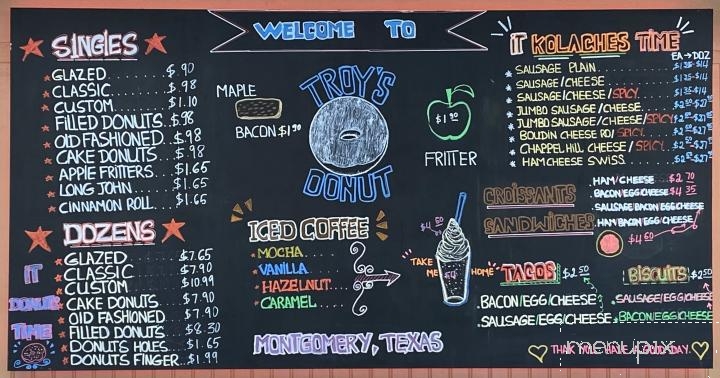 WELCOME TO
SINGLES
GLAZED $.90
CLASSIC $.98
CUSTOM $1.10
FILLED DONUTS $.98
OLD FASHIONED $.98
CAKE DONUTS $.98
APPLE FRITTERS $1.65
LONG JOHN $1.65
CINNAMON ROLL $1.65
DOZENS
GLAZED $7.65
CLASSIC $7.90
CUSTOM $10.99
CAKE DONUTS $7.90
OLD FASHIONED $7.90
FILLED DONUTS $8.30
DONUTS HOLES $1.65
DONUTS FINGER $1.99
IT
DONUTS
TIME
MAPLE
BACON $1.90
TROY'S
DONUT
$1.90
FRITTER
ICED COFFEE
MOCHA
VANILLA
HAZELNUT
CARAMEL
TAKE
ME
HOME
MONTGOMERY, TEXAS
IT KOLACHES TIME
EA → DOZ
SAUSAGE PLAIN
SAUSAGE/CHEESE
SAUSAGE/CHEESE/SPICY
JUMBO SAUSAGE/CHEESE
JUMBO SAUSAGE/CHEESE/SPICY
BOUDIN CHEESE SPICY
CHAPPEL HILL CHEESE/SPICY
HAM CHEESE SWISS
CROISSANTS
SANDWICHES
HAM/CHEESE $2.70
BACON/EGG/CHEESE $4.35
SAUSAGE BACON/EGG/CHEESE
HAM BACON EGG/CHEESE
$4.60
TACOS $2.50
BACON/EGG/CHEESE
SAUSAGE/EGG/CHEESE
BISCUITS $2.50
SAUSAGE/EGG/CHEESE
BACON/EGG/CHEESE
THANK YOU. HAVE A GOOD DAY.
menupix